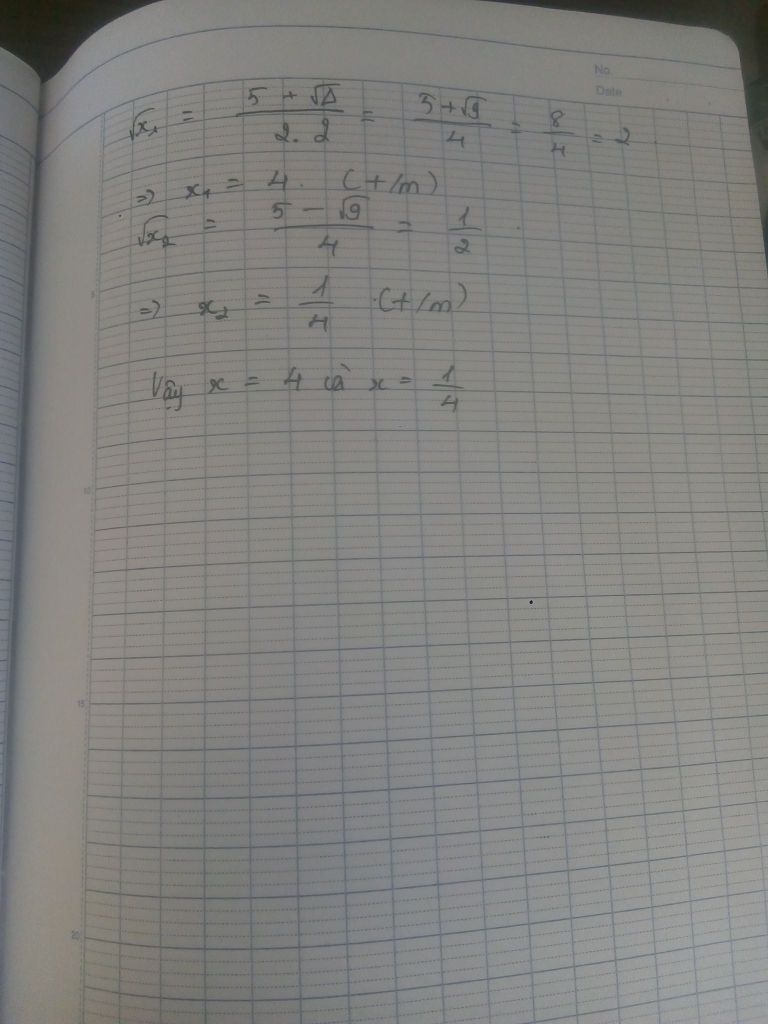 No.
Date
√x₁ = (5 + √Δ)/(2.2) = (5+√9)/4 = 8/4 = 2
⇒ x₁ = 4. (t/m)
√x₂ = (5 - √9)/4 = 1/2
⇒ x₂ = 1/4 (t/m)
Vậy x = 4 và x = 1/4
5
10
15
20